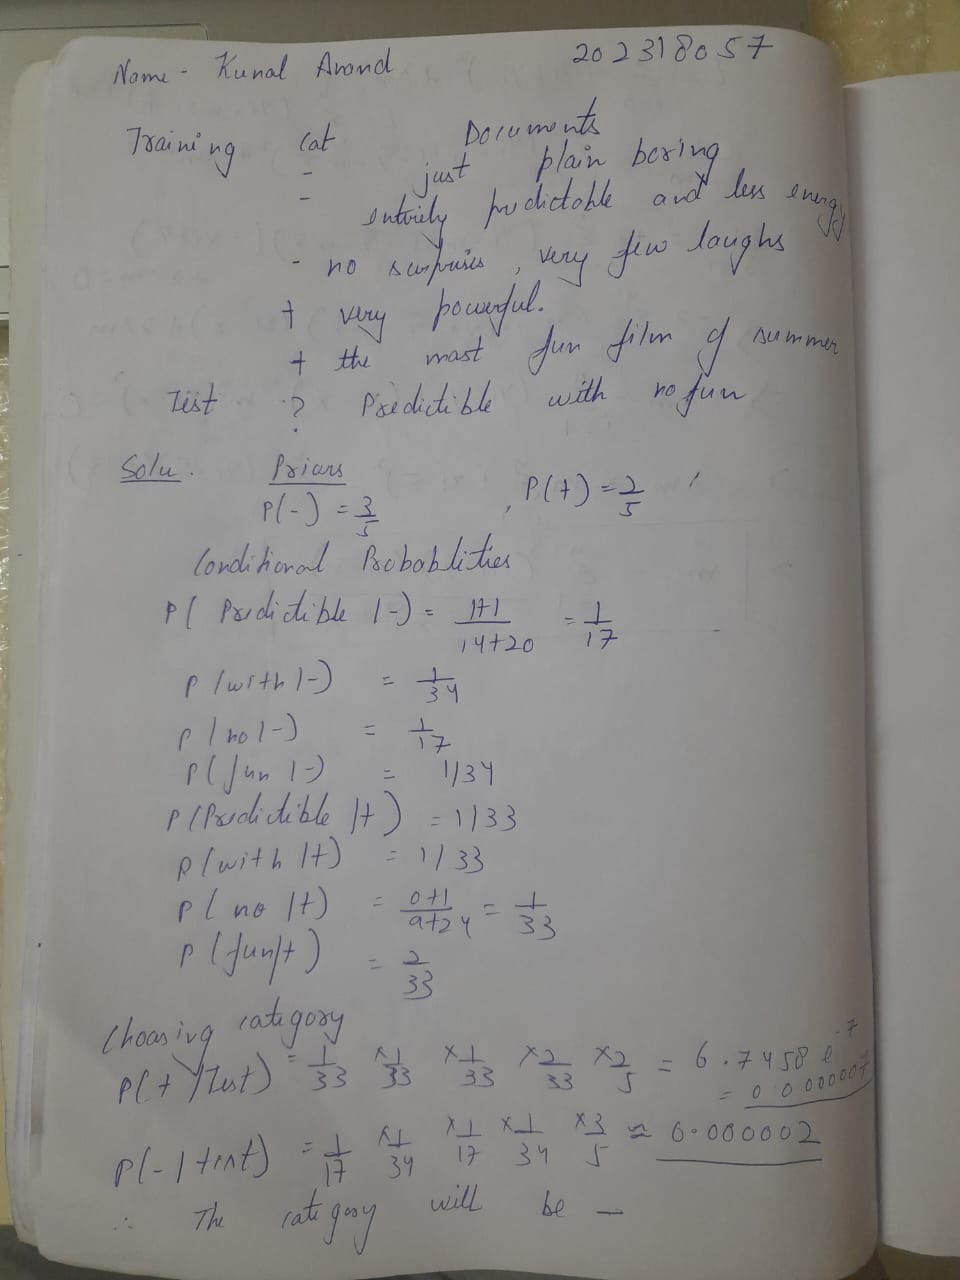 Name - Kunal Anand 202318057
Training Cat Documents
- just plain boring
- entirely predictable and less energy
- no surprises, very few laughs
+ very powerful.
+ the most fun film of summer
Test ? Predictible with no fun
Solu. Priors
P(-) = 3/5 , P(+) = 2/5
Conditional Probablities
P( Predictible |-) = 1+1/14+20 = 1/17
P(with|-) = 1/34
P(no|-) = 1/17
P(fun|-) = 1/34
P(Predictible |+) = 1/33
P(with|+) = 1/33
P(no|+) = 0+1/9+24 = 1/33
P(fun|+) = 2/33
Choosing category
P(+/Test) = 1/33 x 1/33 x 1/33 x 2/33 x 2/5 = 6.7458 e-7
= 0 0 000007
P(-|test) = 1/17 x 1/34 x 1/17 x 1/34 x 3/5 ≈ 0.000002
∴ The category will be -